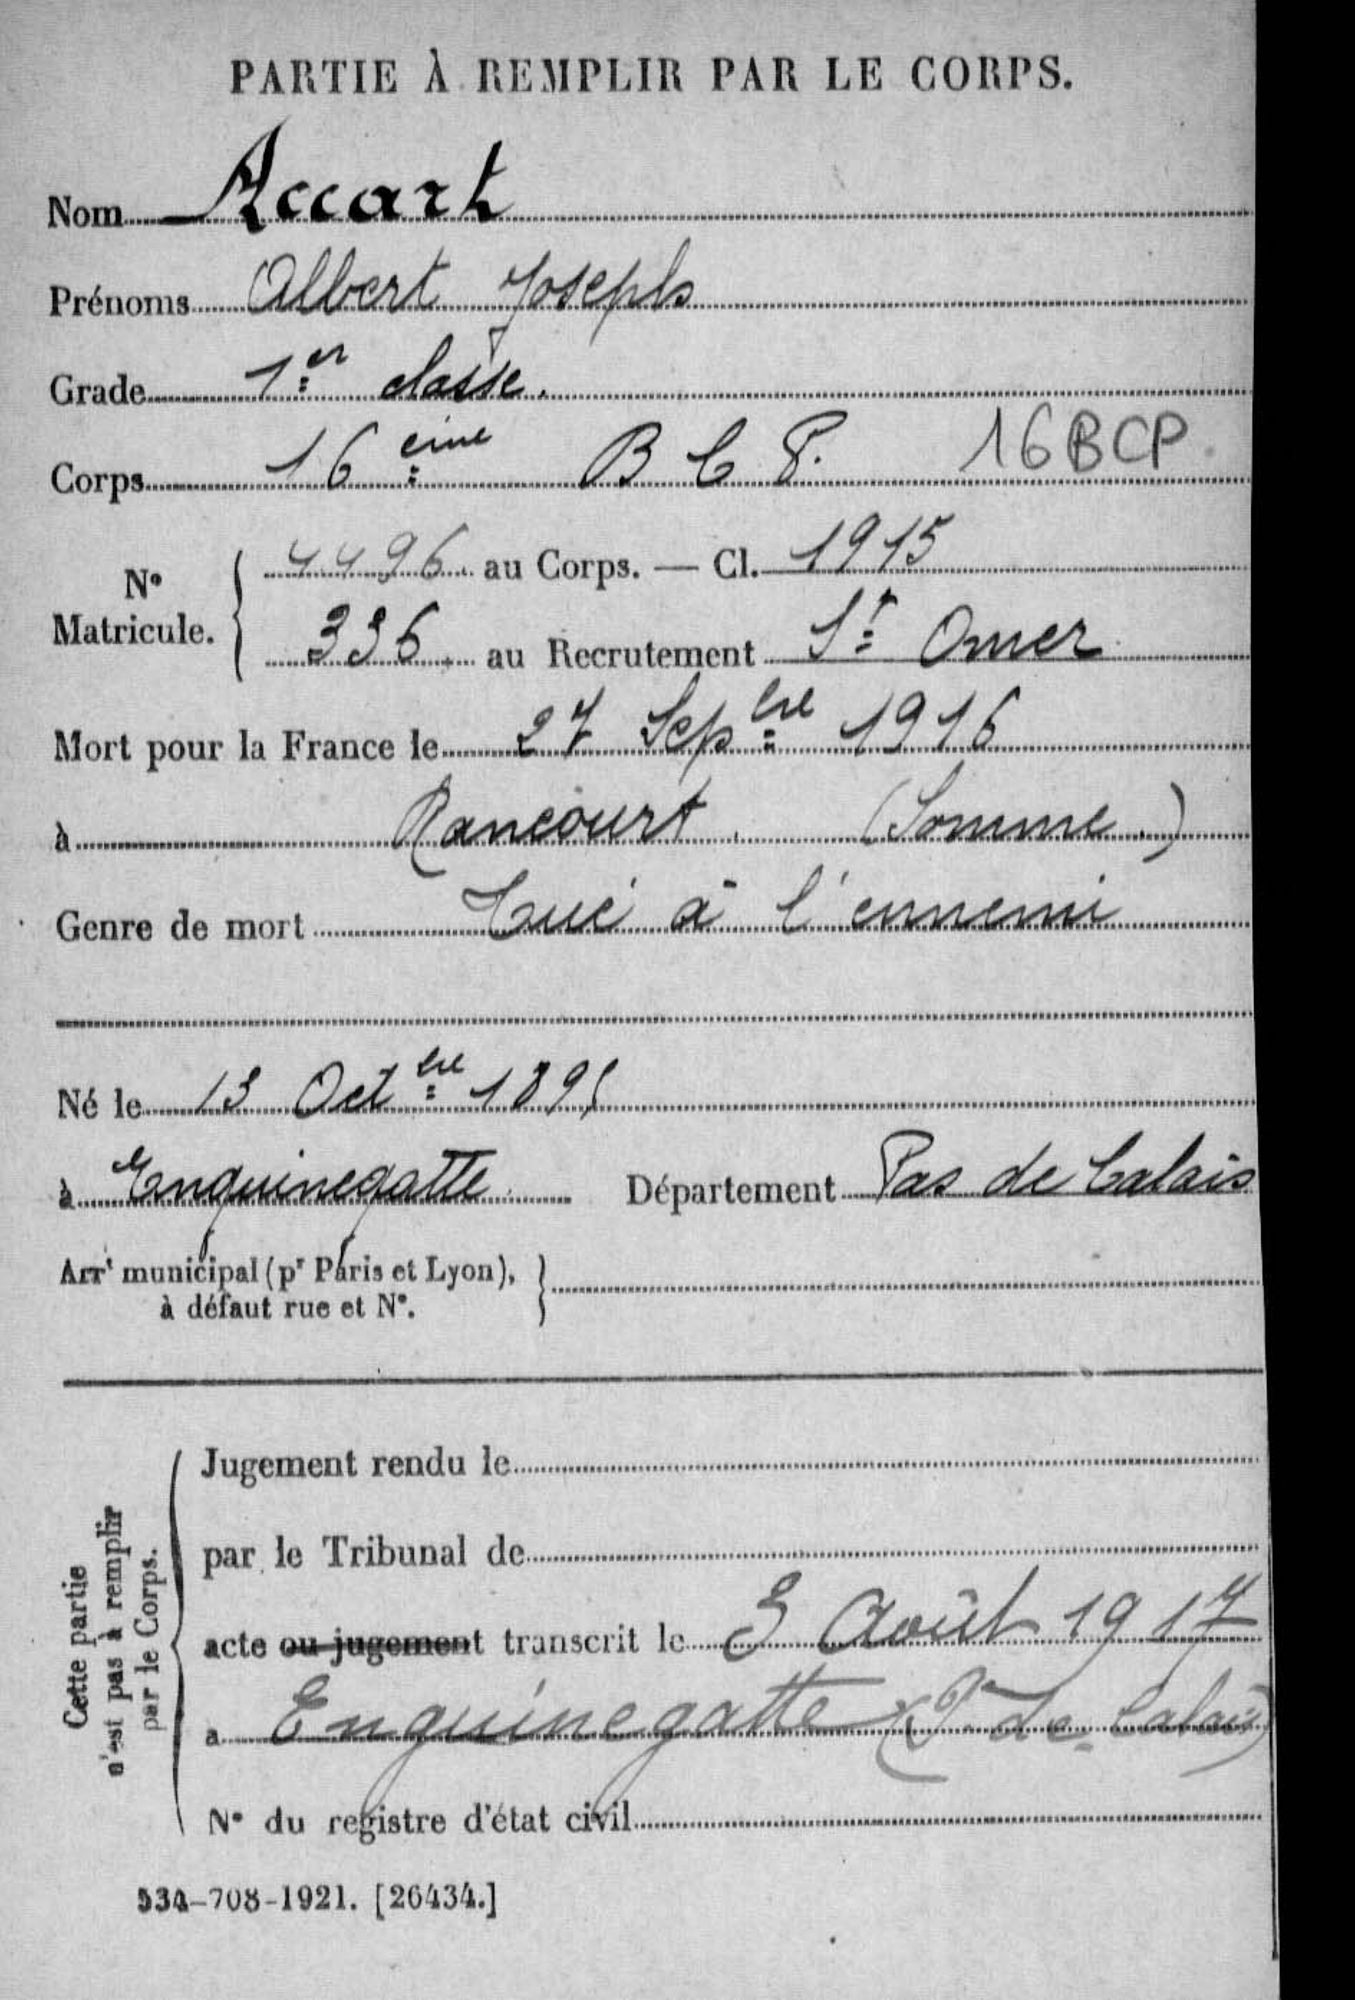 PARTIE À REMPLIR PAR LE CORPS.
Nom Accart
Prénoms Albert Joseph
Grade 1er classe.
Corps 16ème B C P. 16 BCP
N° Matricule. 4496 au Corps. — Cl. 1915
336 au Recrutement St Omer
Mort pour la France le 27 Sepbre 1916
à Rancourt (Somme)
Genre de mort Tué à l'ennemi
Né le 13 Octbre 1895
à Enquinegatte Département Pas de Calais
Arrt municipal (pr Paris et Lyon),
à défaut rue et N°.
Cette partie
n'est pas à remplir
par le Corps.
Jugement rendu le
par le Tribunal de
acte ou jugement transcrit le 3 Août 1917
a Enguinegatte (Ps de Calais)
N° du registre d'état civil
534-708-1921. [26434.]